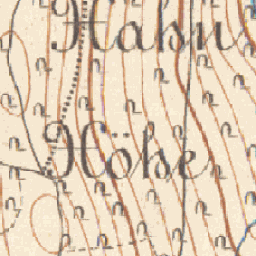 Hahn
Höhe